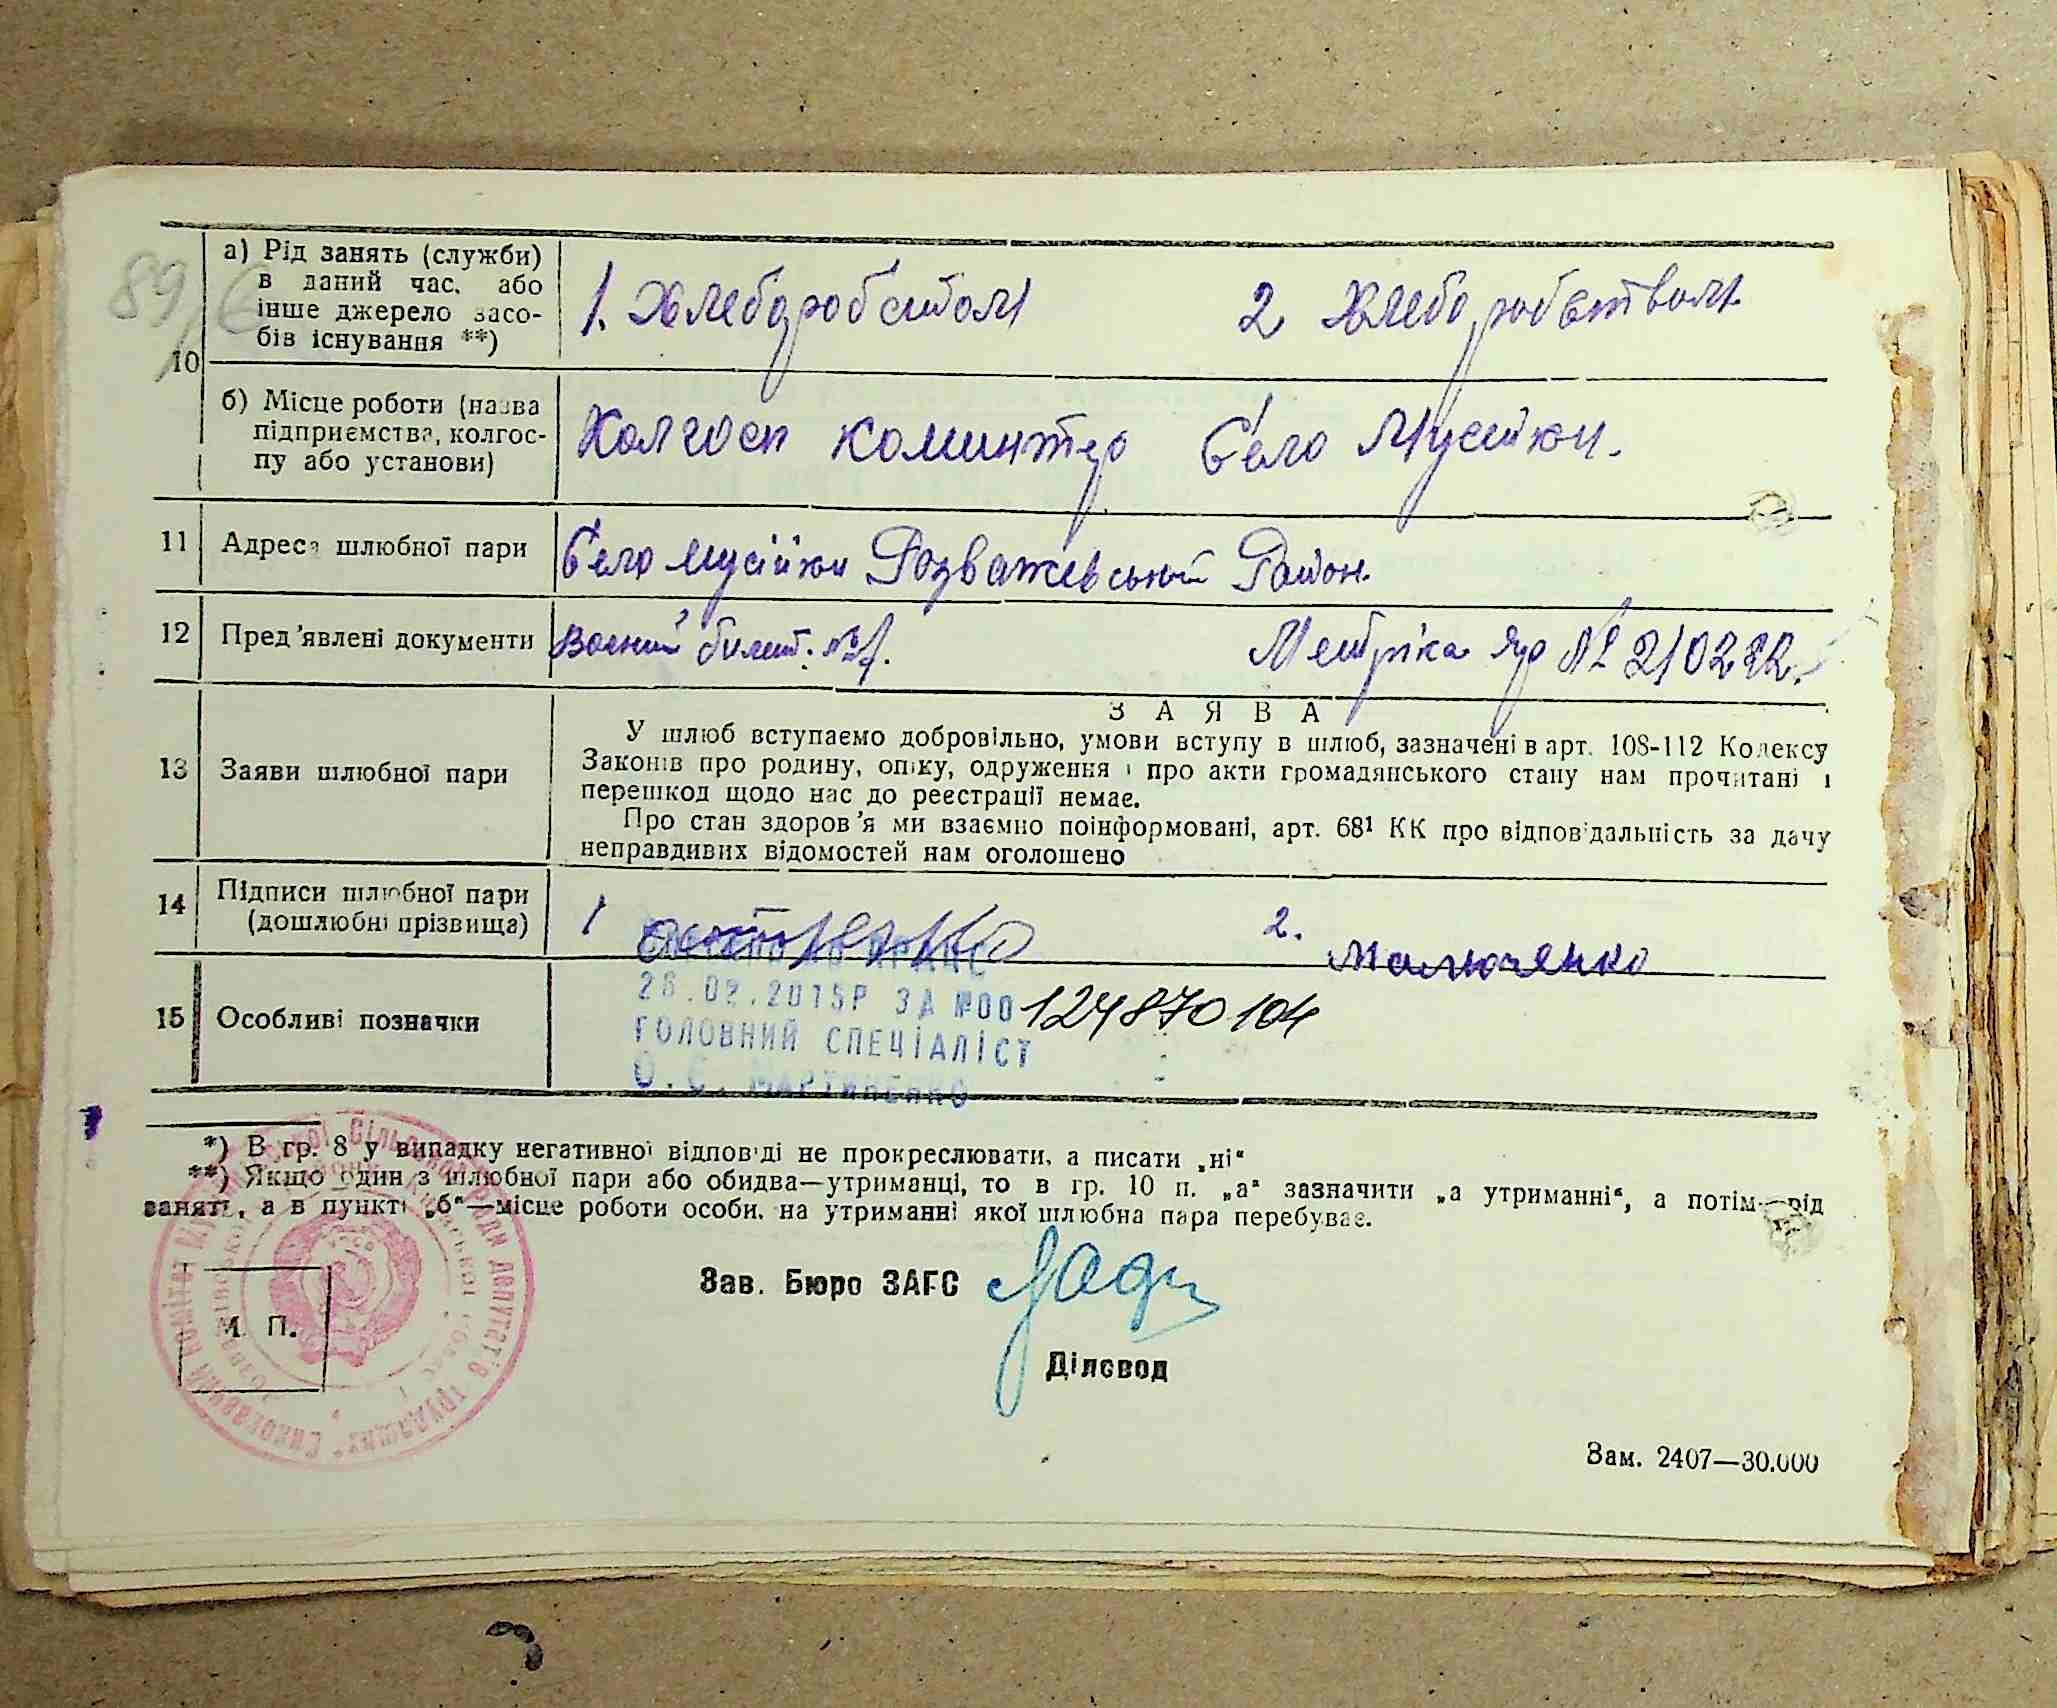 89
10
а) Рід занять (служби)
в даний час, або
інше джерело засо-
бів існування **)
1. Хлеборобством
2 Хлеборобством.
б) Місце роботи (назва
підприємства, колгос-
пу або установи)
Колгосп коминтер Село Мусійки.
11 Адреса шлюбної пари
Село Мусійки Розважевський Район.
12 Пред'явлені документи
Воєний билет. №1.
Метріка яр № 210222.
13 Заяви шлюбної пари
ЗАЯВА
У шлюб вступаємо добровільно, умови вступу в шлюб, зазначені в арт. 108-112 Кодексу
Законів про родину, опіку, одруження і про акти громадянського стану нам прочитані і
перешкод щодо нас до реєстрації немає.
Про стан здоров'я ми взаємно поінформовані, арт. 68¹ КК про відповідальність за дачу
неправдивих відомостей нам оголошено
14 Підписи шлюбної пари
(дошлюбні прізвища)
1
2. Малюченко
15 Особливі позначки
26.02.2015Р ЗА №00124870104
ГОЛОВНИЙ СПЕЦІАЛІСТ
О. С. МАРТИНЕНКО
*) В гр. 8 у випадку негативної відповіді не прокреслювати, а писати „ні“
**) Якщо один з шлюбної пари або обидва—утриманці, то в гр. 10 п. „а“ зазначити „а утриманні“, а потім—рід
занять, а в пункті „б“—місце роботи особи, на утриманні якої шлюбна пара перебуває.
Зав. Бюро ЗАГС
М. П.
Діловод
Зам. 2407—30.000